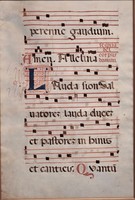 perenne gaudium.
Amen. Alleluia
Lauda Sion Sal
vatorem lauda ducem
et pastorem in himnis
et canticis. Quantū